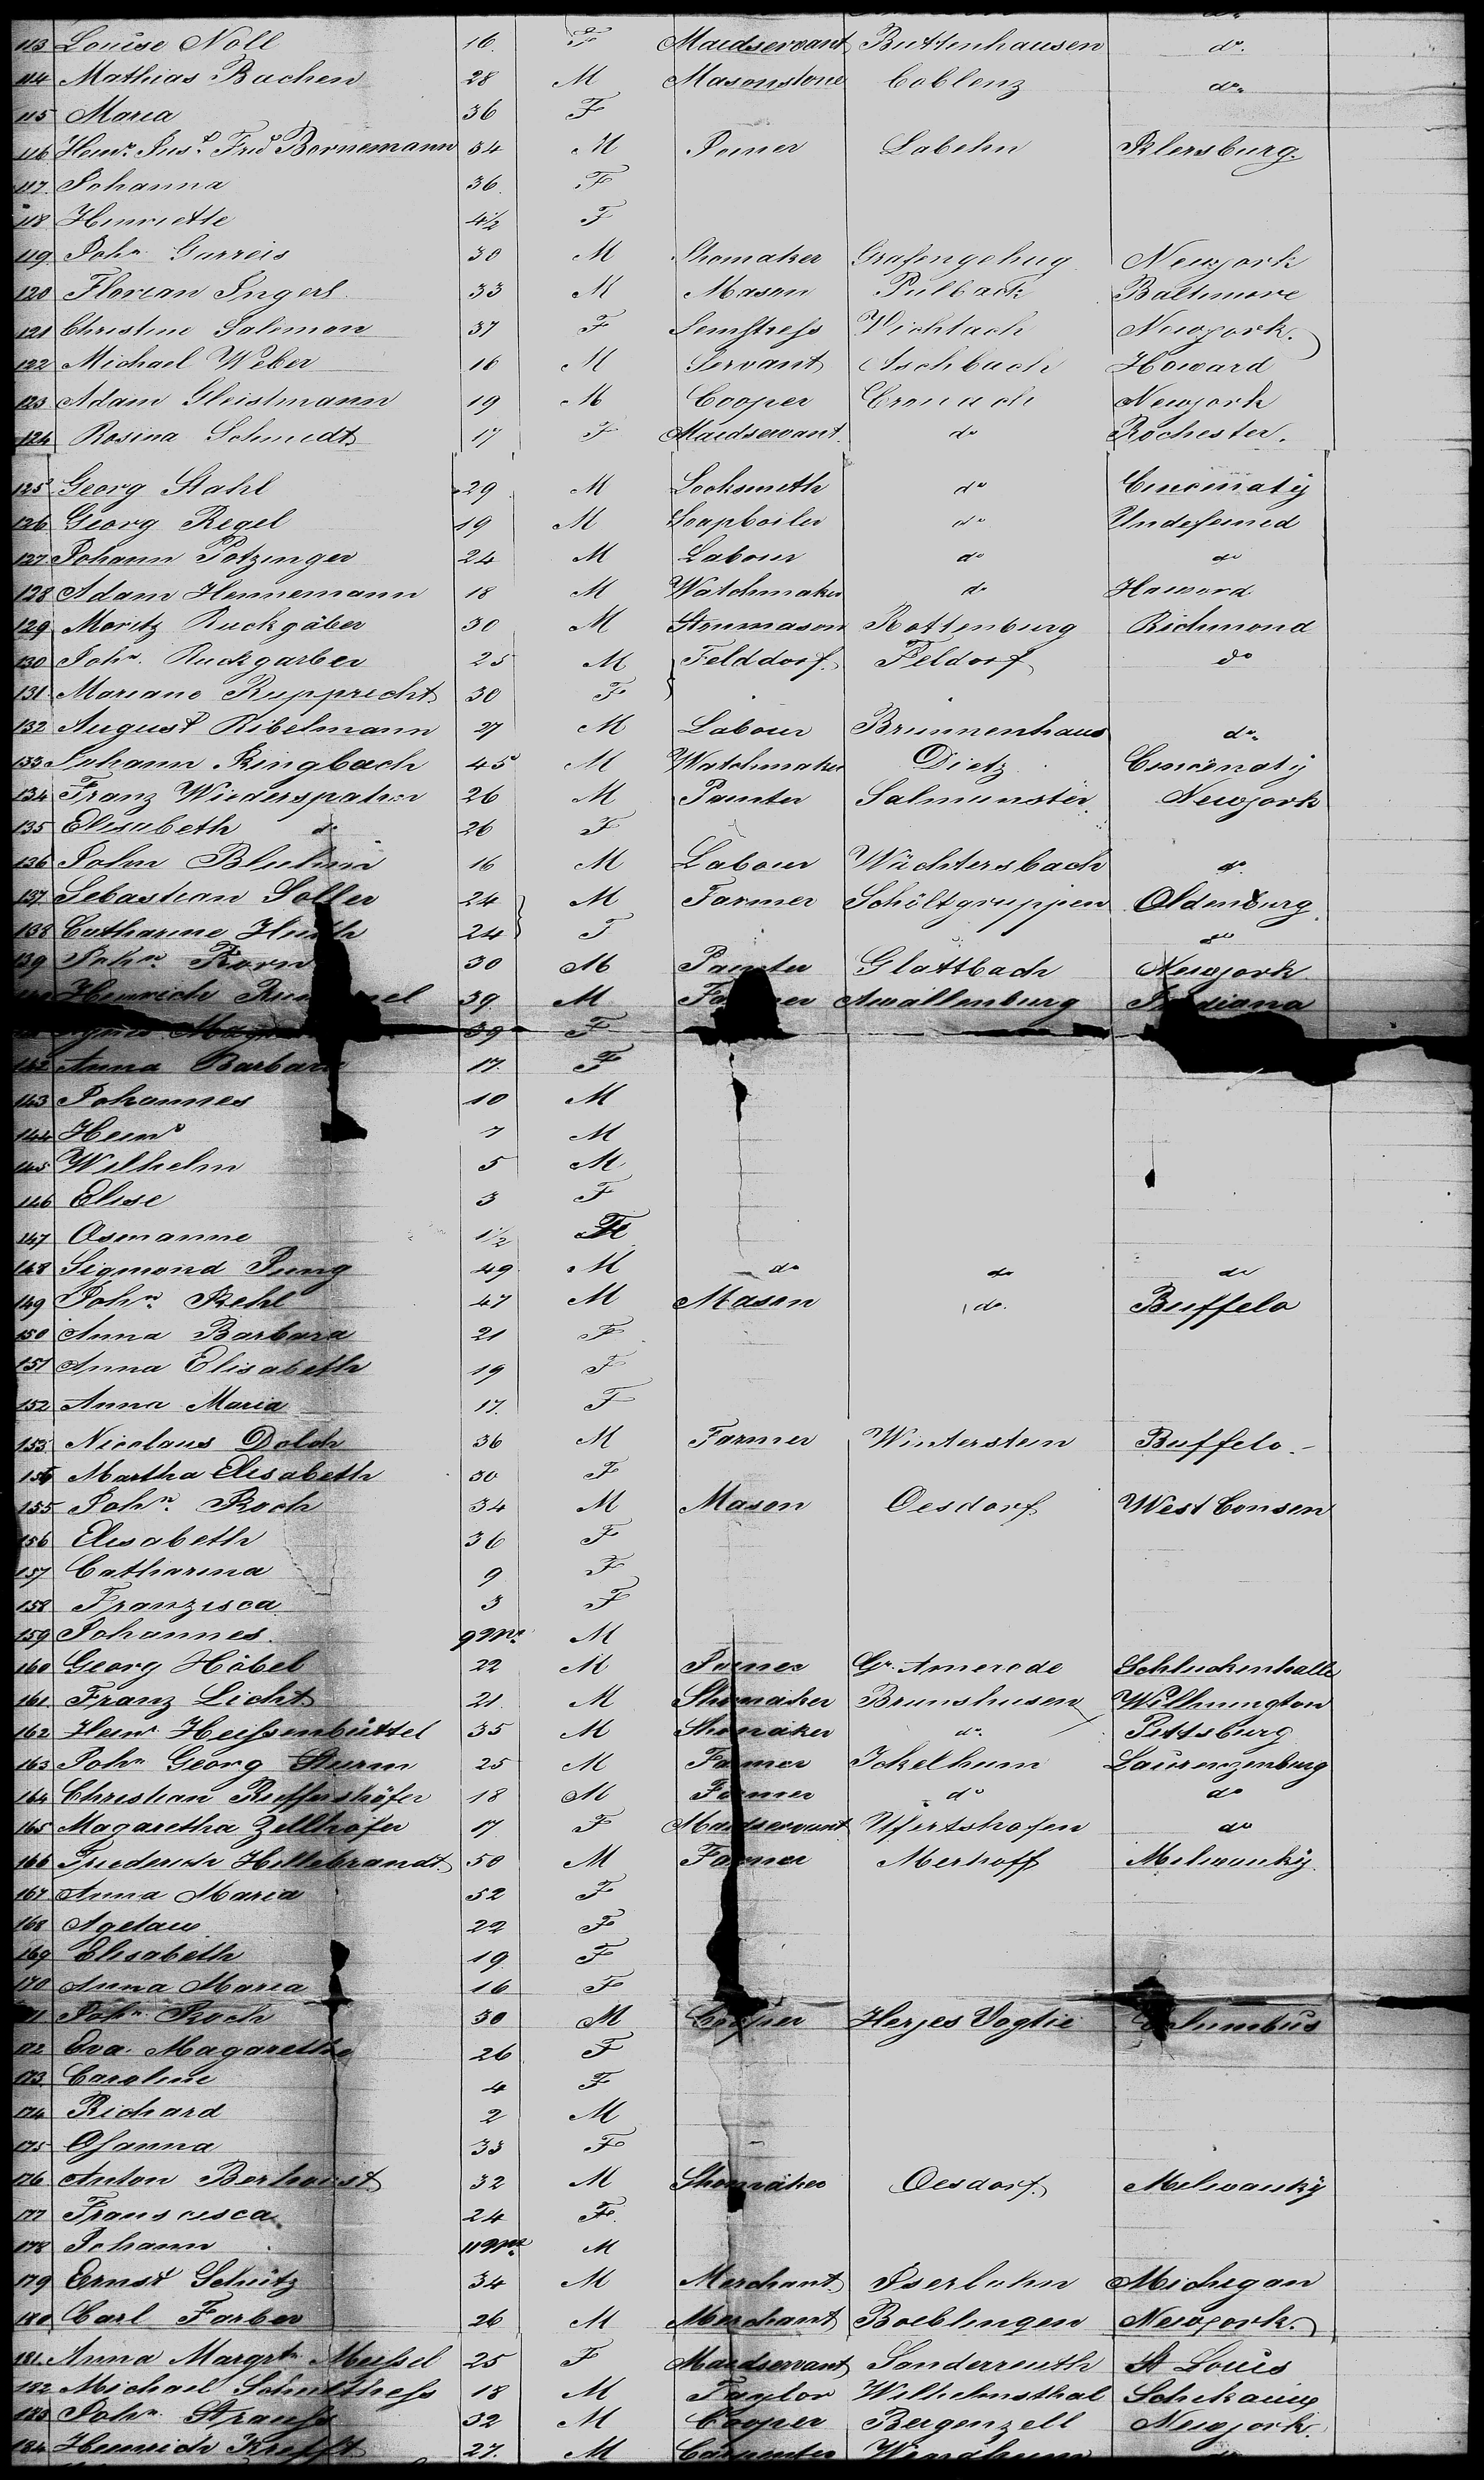 113 Louise Noll 16 F Maidservant Buttenhausen do
114 Mathias Bachen 28 M Masonstone Coblenz do
115 Maria 36 F
116 Heinr. Just. Frid Bornemann 34 M Labehn
117 Johanna 36 F
118 Henriette 4½ F
119 John Garreis 30 M Shomaker Grafengehug Newyork
120 Florian Ingerl 33 M Mason Pulbach Baltimore
121 Christine Salomon 37 F Semstress Newyork
122 Michael Weber 16 M Servant Aschbach Howard
123 Adam Gleistmann 19 M Cooper Cronach Newyork
124 Rosina Schmidt 17 F Maidservant do Rochester.
125 Georg Stahl 29 M Locksmith do Cincinaty
126 Georg Regel 19 M Soapboiler do Undefeined
127 Johann Potzinger 24 M Labour do do
128 Adam Hennemann 18 M Watchmaker do Howord
129 Moritz Ruckgäber 30 M Rottenburg Richmond
130 Johr. Ruckgarber 25 M Felddorf Feldorf do
131 Mariane Rupprecht 30 F
132 August Ribelmann 27 M Labour Brunnenhaus do
133 Johann Ringbach 45 M Watchmaker Dietz Cincinaty
134 Franz Wiederspahn 26 M Painter Salmunster Newyork
135 Elisabeth do 26 F
136 John Bluhm 16 M Labour Wächtersbach do
137 Sebastian Soller 24 M Farmer Schöltgruppen Oldenburg
138 Catharine Huth 24 F do
139 Johr. Korn 30 M Painter Glattbach Newyork
Heinrich 39 M Farmer Awallenburg Indiana
39 F
142 Anna Barbara 17 F
143 Johannes 10 M
144 Heinr 7 M
145 Wilhelm 5 M
146 Elise 3 F
147 Osmanne 1½
148 Sigmond Jung 49 M do do do
149 Johr. Rehl 47 M Mason do Buffelo
150 Anna Barbara 21 F
151 Anna Elisabeth 19 F
152 Anna Maria 17 F
153 Nicolaus Dolch 36 M Farmer Winterstein Buffelo
154 Martha Elisabeth 30 F
155 Johr. Koch 34 M Mason Oesdorf West Consen
156 Elisabeth 36 F
157 Catharina 9 F
158 Franzisca 3 F
159 Johannes 9 Mt M
160 Georg Höbel 22 M Gr. Amerode Schluckenhalle
161 Franz Licht 21 M Shomaker Brunshusen Wilhmington
162 Heinr Heissenbüttel 35 M Shomaker do Pittsburg
163 Johr Georg Sturm 25 M Farmer Ickelheim Laurenzenburg
164 Christian Rieffershöfer 18 M Farmer do do
165 Magaretha Zellhöfer 17 F Maidservant Ufertshofen do
166 Friederich Hillebrandt 50 M Farmer Merhoff Milwauky
167 Anna Maria 52 F
168 22 F
169 Elisabeth 19 F
170 Anna Maria 16 F
171 Johr. Koch 30 M Cooper Herjes Vogtie Columbus
172 Eva Magaretha 26 F
173 Caroline 4 F
174 Richard 2 M
175 Osanna 33 F
176 Anton Berhorst 32 M Shomaker Oesdorf Milwauky
177 Franscisca 24 F
178 Johann 11 Mt M
179 Ernst Schütz 34 M Merchant Iserlohn Michigan
180 Carl Farber 26 M Merchant Boeblingen Newyork
181 Anna Margrth Meissel 25 F Maidservant Sanderreuth St Louis
182 Michael Schulthess 18 M Taylor Wilhelmsthal
183 Johr. Strauss 32 M Cooper Bergenzell Newyork
184 Heinrich Krefft 27 M Carpenter